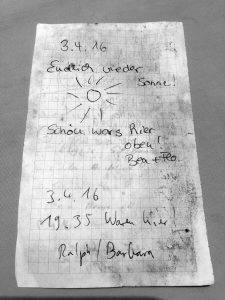 3.4.16
Endlich wieder
Sonne!
Schön wars hier
oben!
Bea + 
3.4.16
19.35 Waren hier
Ralph / Barbara